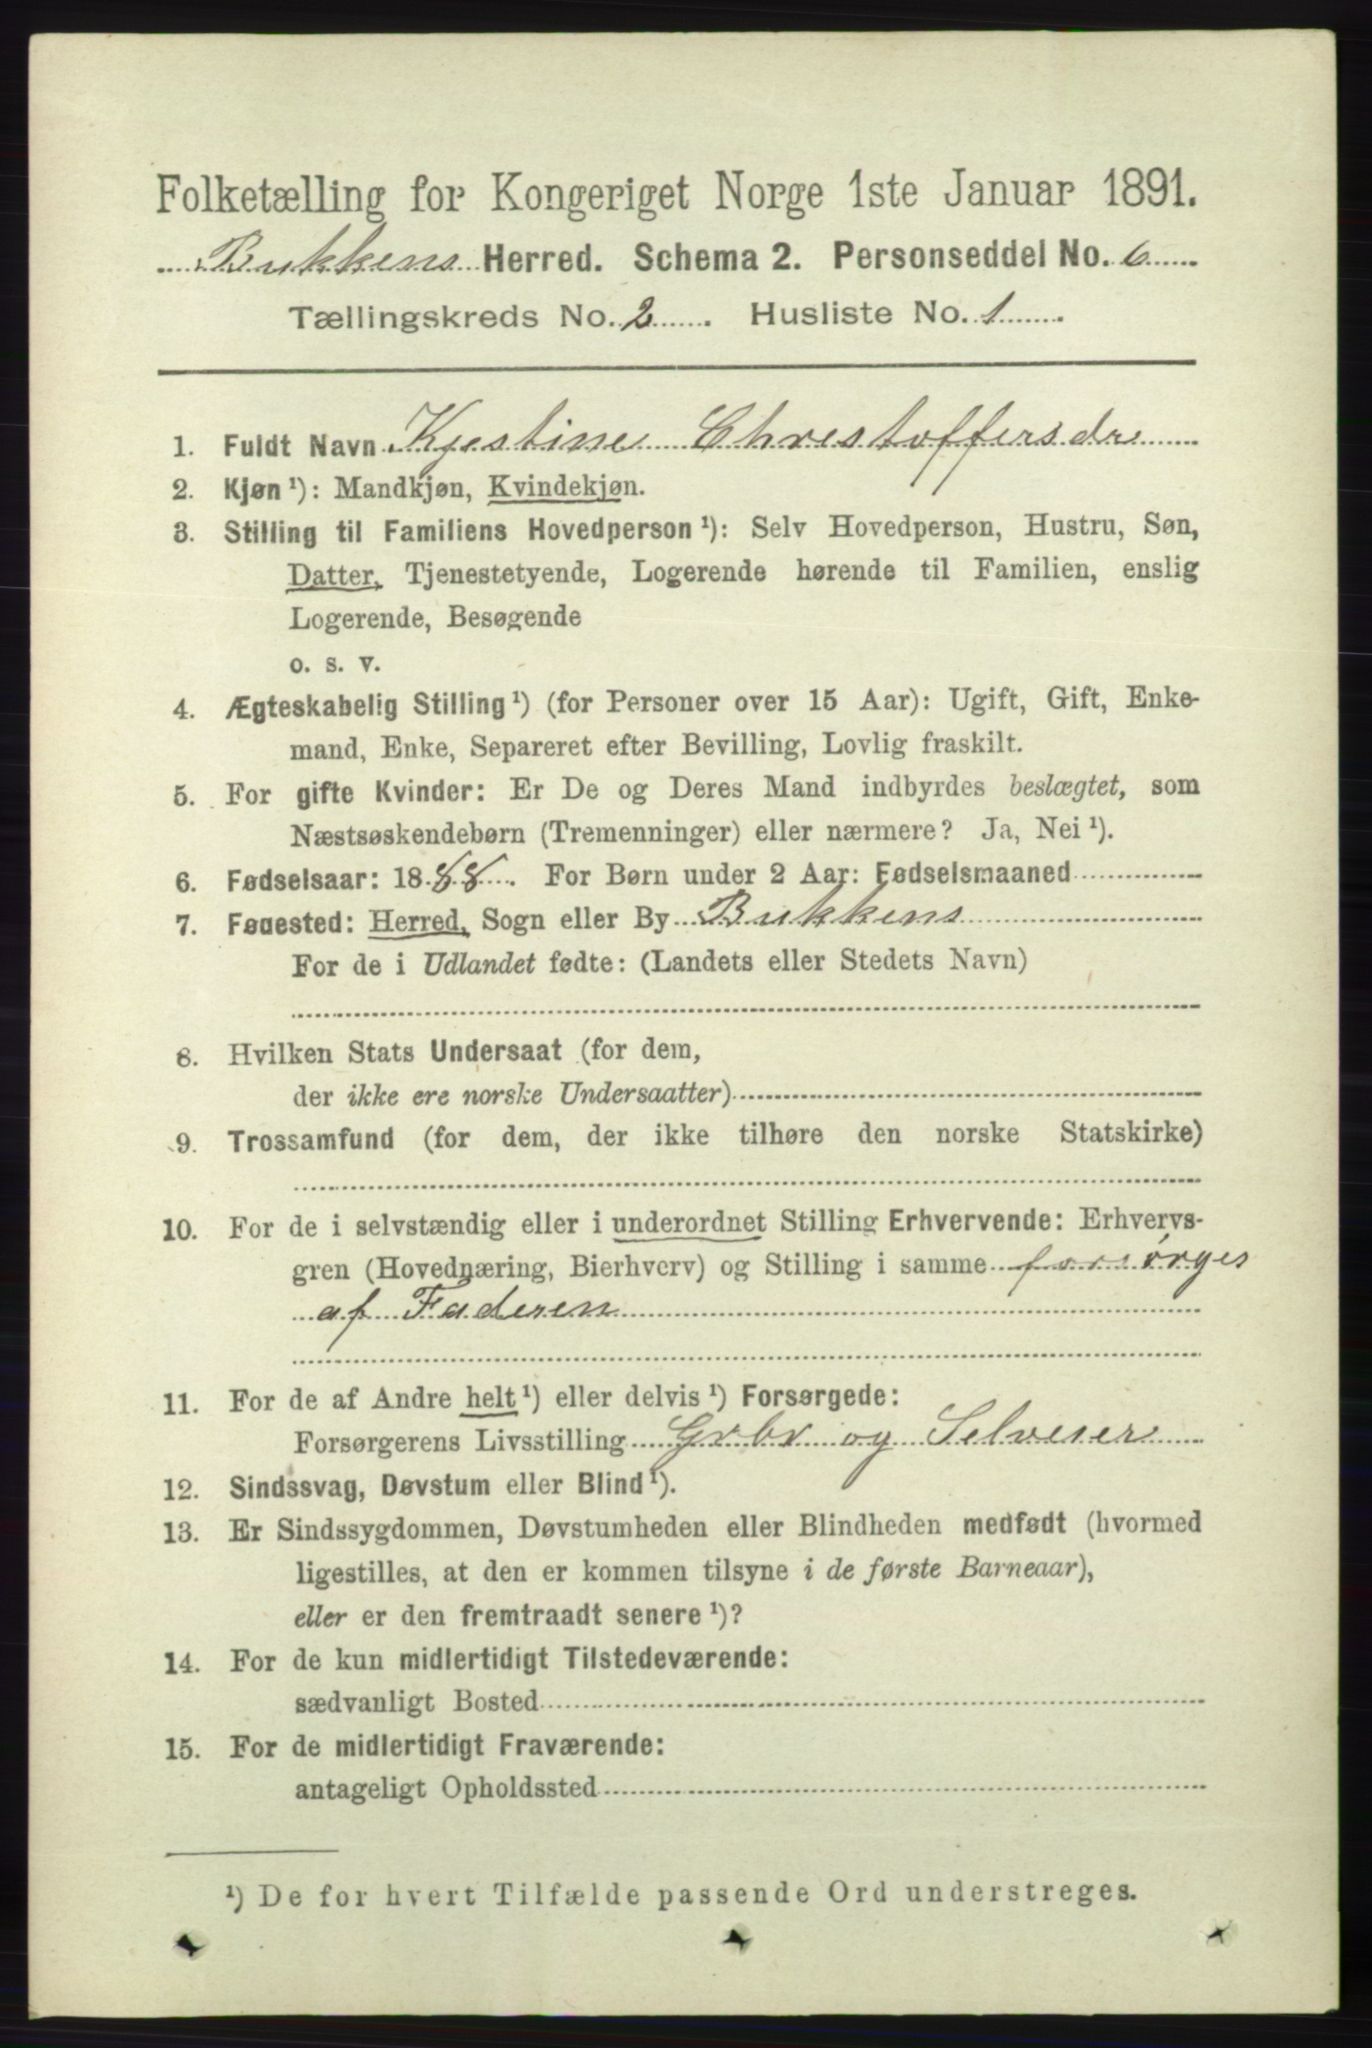 Folketælling for Kongeriget Norge 1ste Januar 1891.
Bukkens Herred. Schema 2. Personseddel No. 6
Tællingskreds No. 2 Husliste No. 1
1. Fuldt Navn Kjestine Chrestoffersdr
2. Kjøn ¹): Mandkjøn, Kvindekjøn.
3. Stilling til Familiens Hovedperson ¹): Selv Hovedperson, Hustru, Søn,
Datter, Tjenestetyende, Logerende hørende til Familien, enslig
Logerende, Besøgende
o. s. v.
4. Ægteskabelig Stilling ¹) (for Personer over 15 Aar): Ugift, Gift, Enke-
mand, Enke, Separeret efter Bevilling, Lovlig fraskilt.
5. For gifte Kvinder: Er De og Deres Mand indbyrdes beslægtet, som
Næstsøskendebørn (Tremenninger) eller nærmere? Ja, Nei ¹).
6. Fødselsaar: 1888. For Børn under 2 Aar: Fødselsmaaned
7. Fødested: Herred, Sogn eller By Bukkens
For de i Udlandet fødte: (Landets eller Stedets Navn)
8. Hvilken Stats Undersaat (for dem,
der ikke ere norske Undersaatter)
9. Trossamfund (for dem, der ikke tilhøre den norske Statskirke)
10. For de i selvstændig eller i underordnet Stilling Erhvervende: Erhvervs-
gren (Hovednæring, Bierhverv) og Stilling i samme forsørges
af Faderen
11. For de af Andre helt ¹) eller delvis ¹) Forsørgede:
Forsørgerens Livsstilling Grbr og Selveier
12. Sindssvag, Døvstum eller Blind ¹).
13. Er Sindssygdommen, Døvstumheden eller Blindheden medfødt (hvormed
ligestilles, at den er kommen tilsyne i de første Barneaar),
eller er den fremtraadt senere ¹)?
14. For de kun midlertidigt Tilstedeværende:
sædvanligt Bosted
15. For de midlertidigt Fraværende:
antageligt Opholdssted
¹) De for hvert Tilfælde passende Ord understreges.